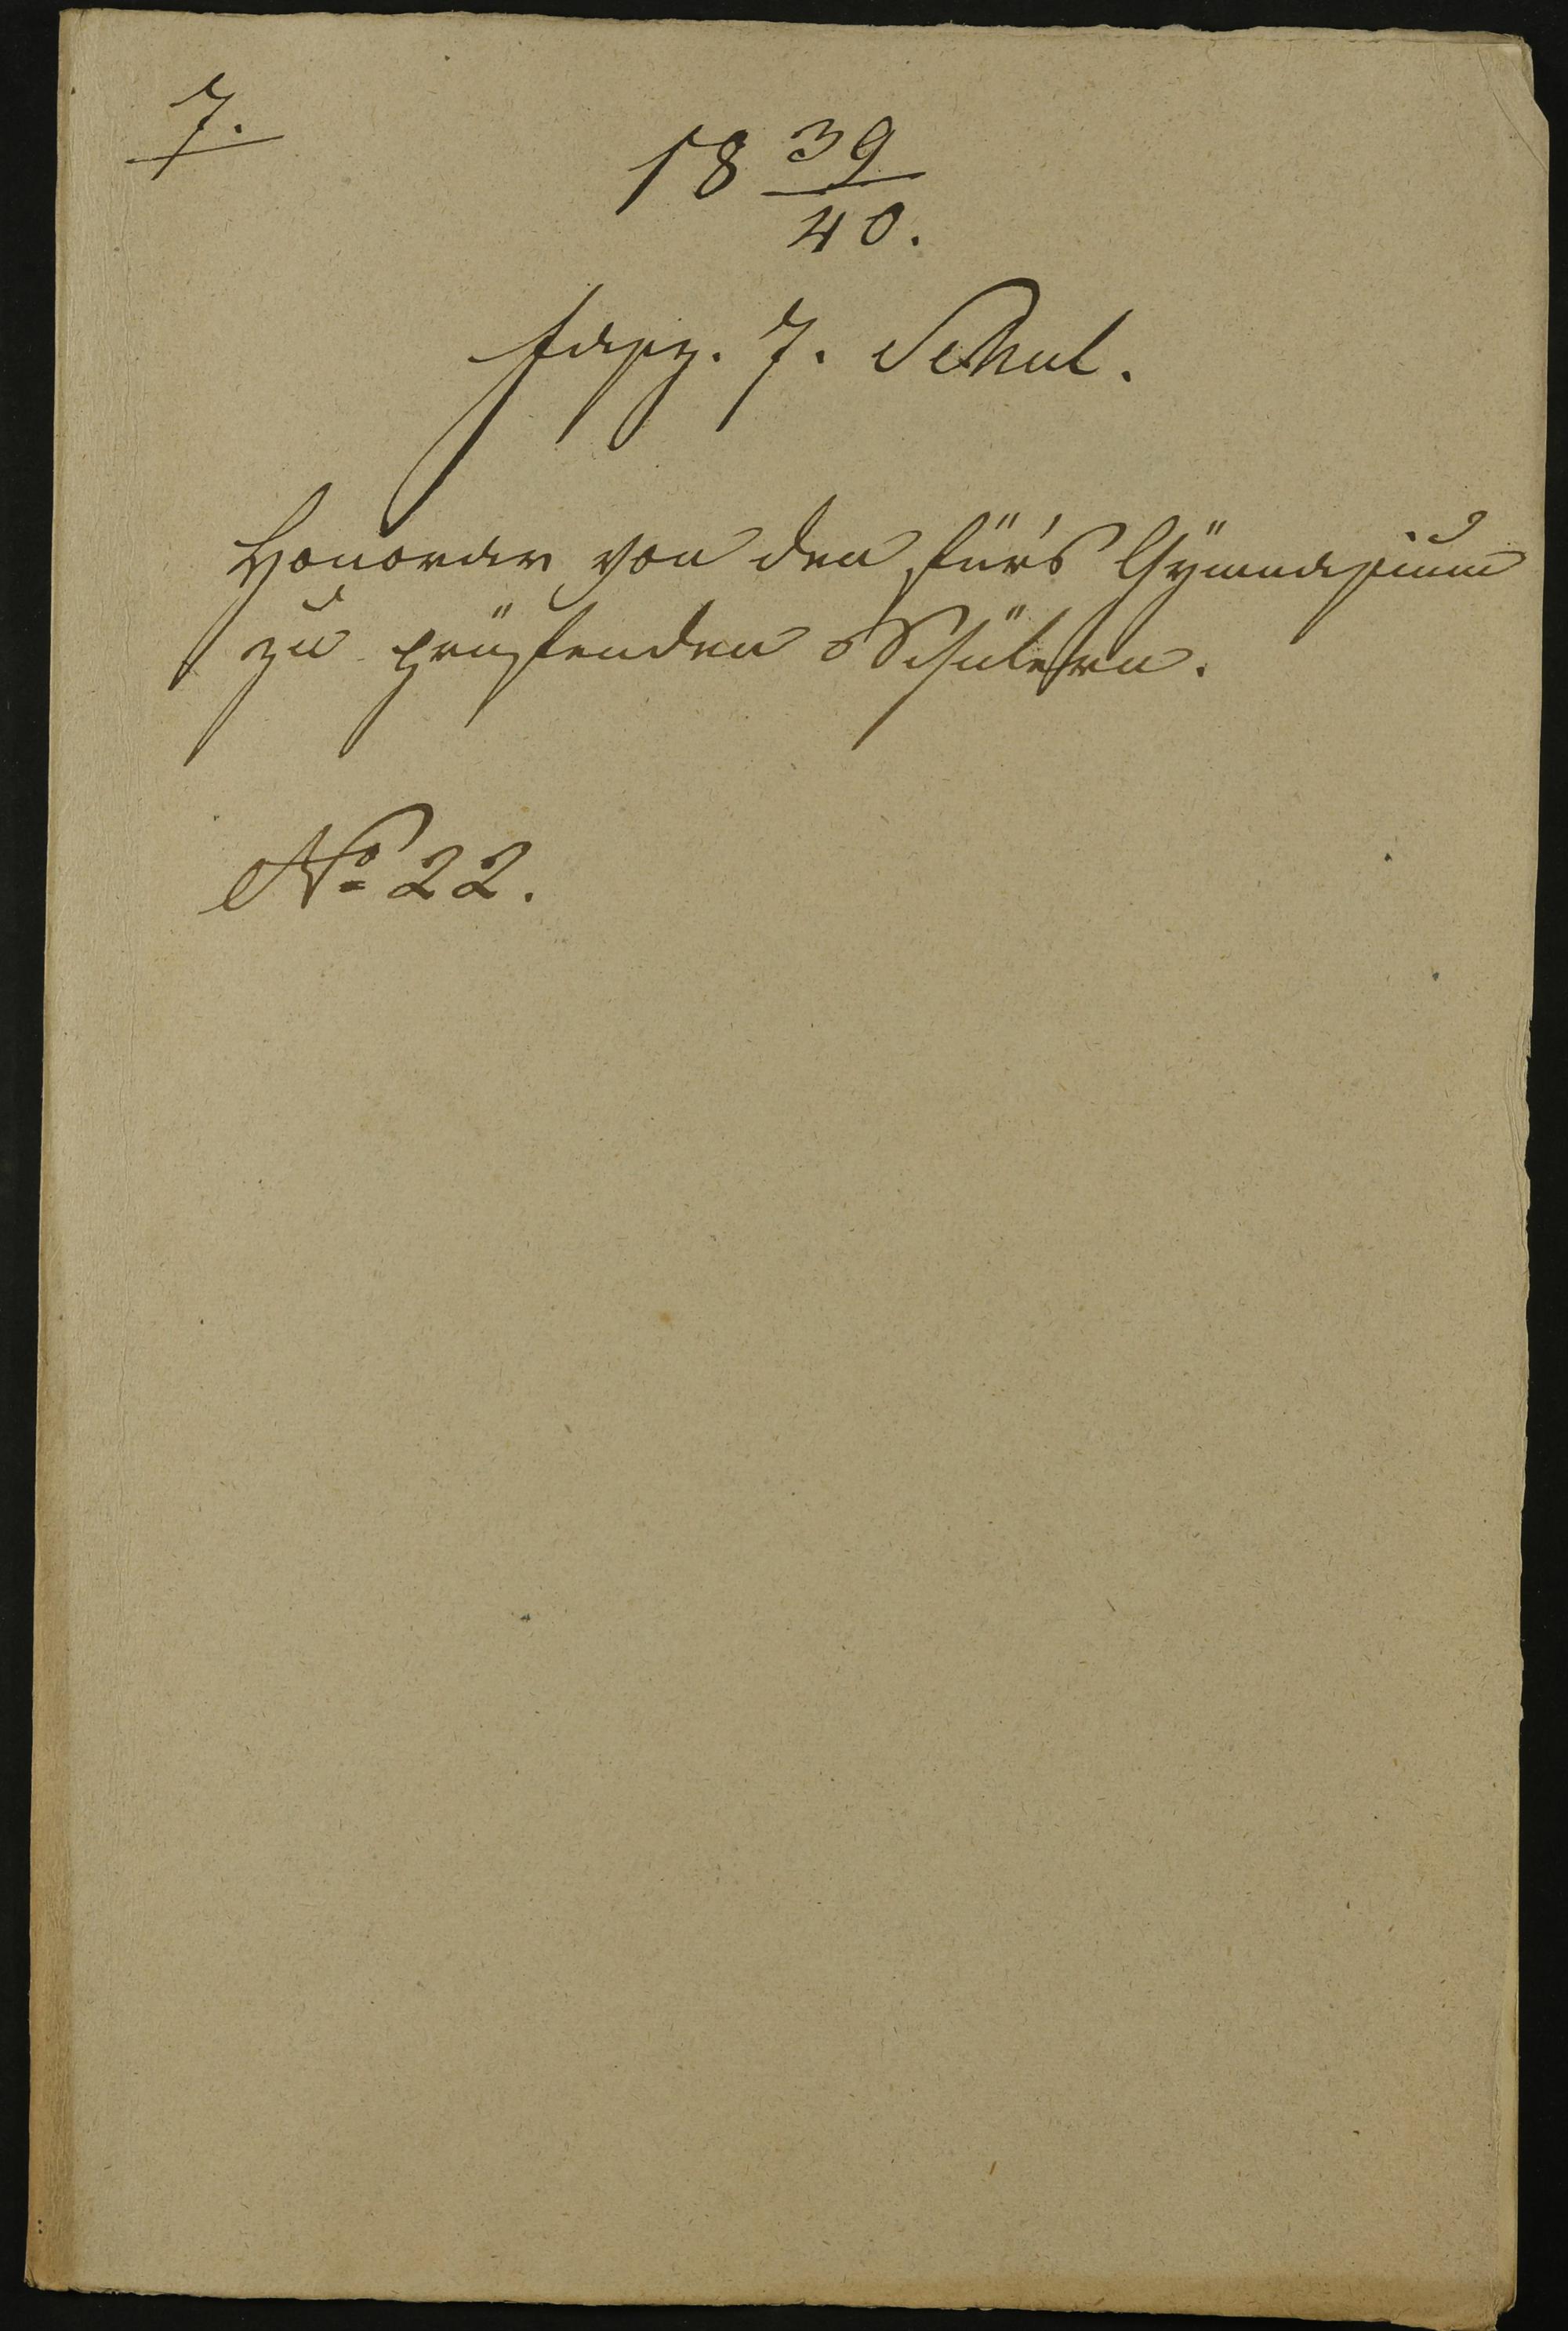 7.
18 39/40.
fasz. 7. Schul.
Honorar von den für's Gÿmnasium
zu prüfenden Schülern.
No 22.